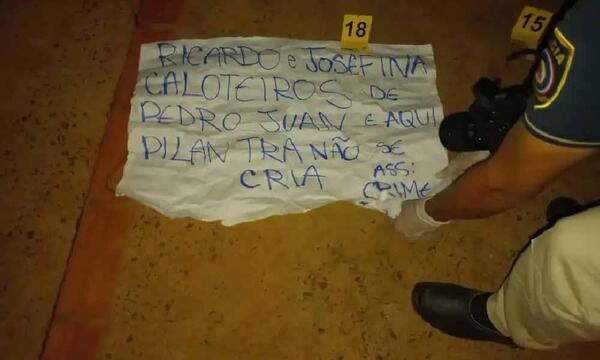 18
15
RICARDO e JOSEFINA
CALOTEIROS DE
PEDRO JUAN E AQUI
PILANTRA NÃO SE
CRIA ASS:
CRIME